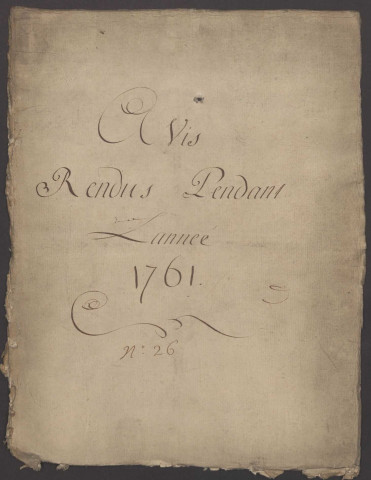 Avis
Rendus Pendant
Lanneé
1761.
N.° 26